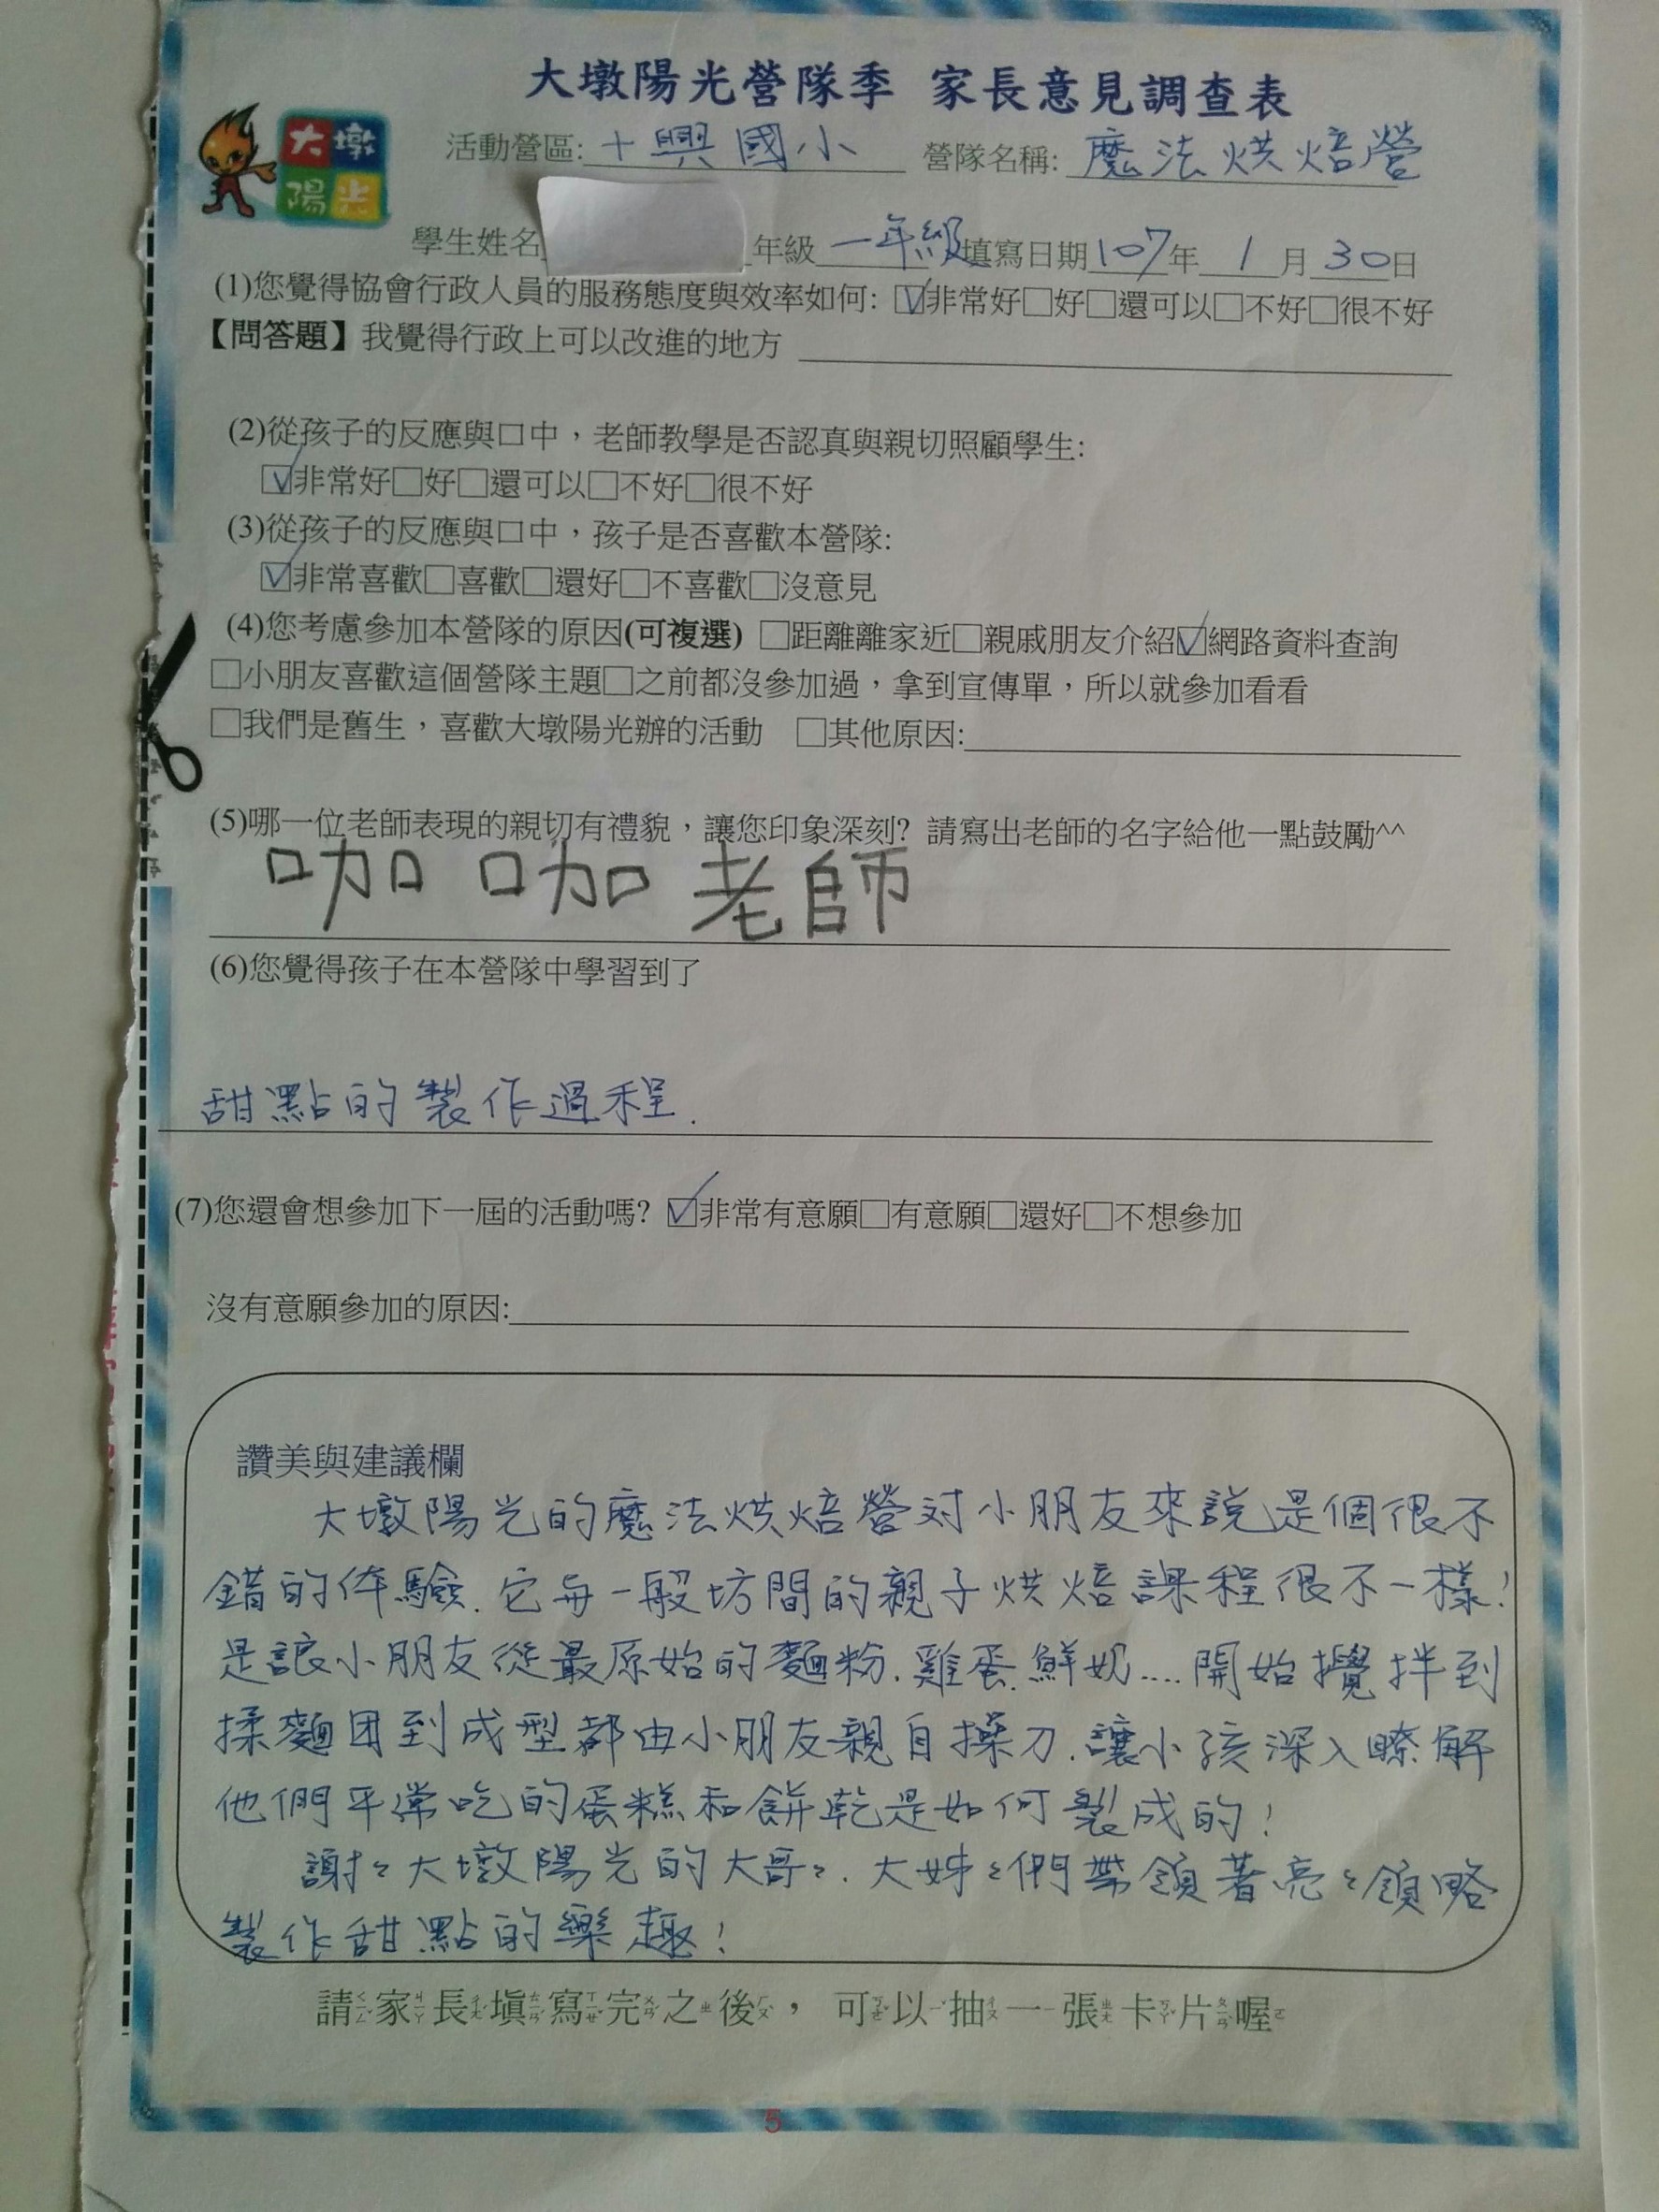 大墩陽光營隊季 家長意見調查表
大墩
陽光
活動營區:十興國小 營隊名稱:魔法烘焙營
學生姓名 年級一年級填寫日期107年1月30日
(1)您覺得協會行政人員的服務態度與效率如何: ☑非常好□好□還可以□不好□很不好
【問答題】我覺得行政上可以改進的地方
(2)從孩子的反應與口中,老師教學是否認真與親切照顧學生:
☑非常好□好□還可以□不好□很不好
(3)從孩子的反應與口中,孩子是否喜歡本營隊:
☑非常喜歡□喜歡□還好□不喜歡□沒意見
(4)您考慮參加本營隊的原因(可複選) □距離離家近□親戚朋友介紹☑網路資料查詢
□小朋友喜歡這個營隊主題□之前都沒參加過,拿到宣傳單,所以就參加看看
□我們是舊生,喜歡大墩陽光辦的活動 □其他原因:
(5)哪一位老師表現的親切有禮貌,讓您印象深刻? 請寫出老師的名字給他一點鼓勵^^
咖咖老師
(6)您覺得孩子在本營隊中學習到了
甜點的製作過程.
(7)您還會想參加下一屆的活動嗎? ☑非常有意願□有意願□還好□不想參加
沒有意願參加的原因:
讚美與建議欄
大墩陽光的魔法烘焙營对小朋友來說是個很不
錯的体驗.它與一般坊間的親子烘焙課程很不一樣!
是讓小朋友從最原始的麵粉.雞蛋.鮮奶....開始攪拌到
揉麵团到成型都由小朋友親自操刀.讓小孩深入瞭解
他們平常吃的蛋糕和餅乾是如何製成的!
謝々大墩陽光的大哥々.大姊々們帶領著亮々領略
製作甜點的樂趣!
請家長填寫完之後, 可以抽一張卡片喔
5